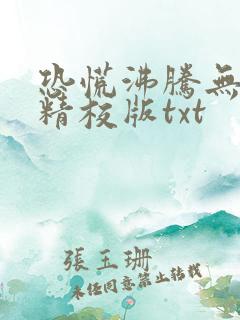 恐慌沸騰無
精校版txt
張玉珊
未經同意禁止轉載